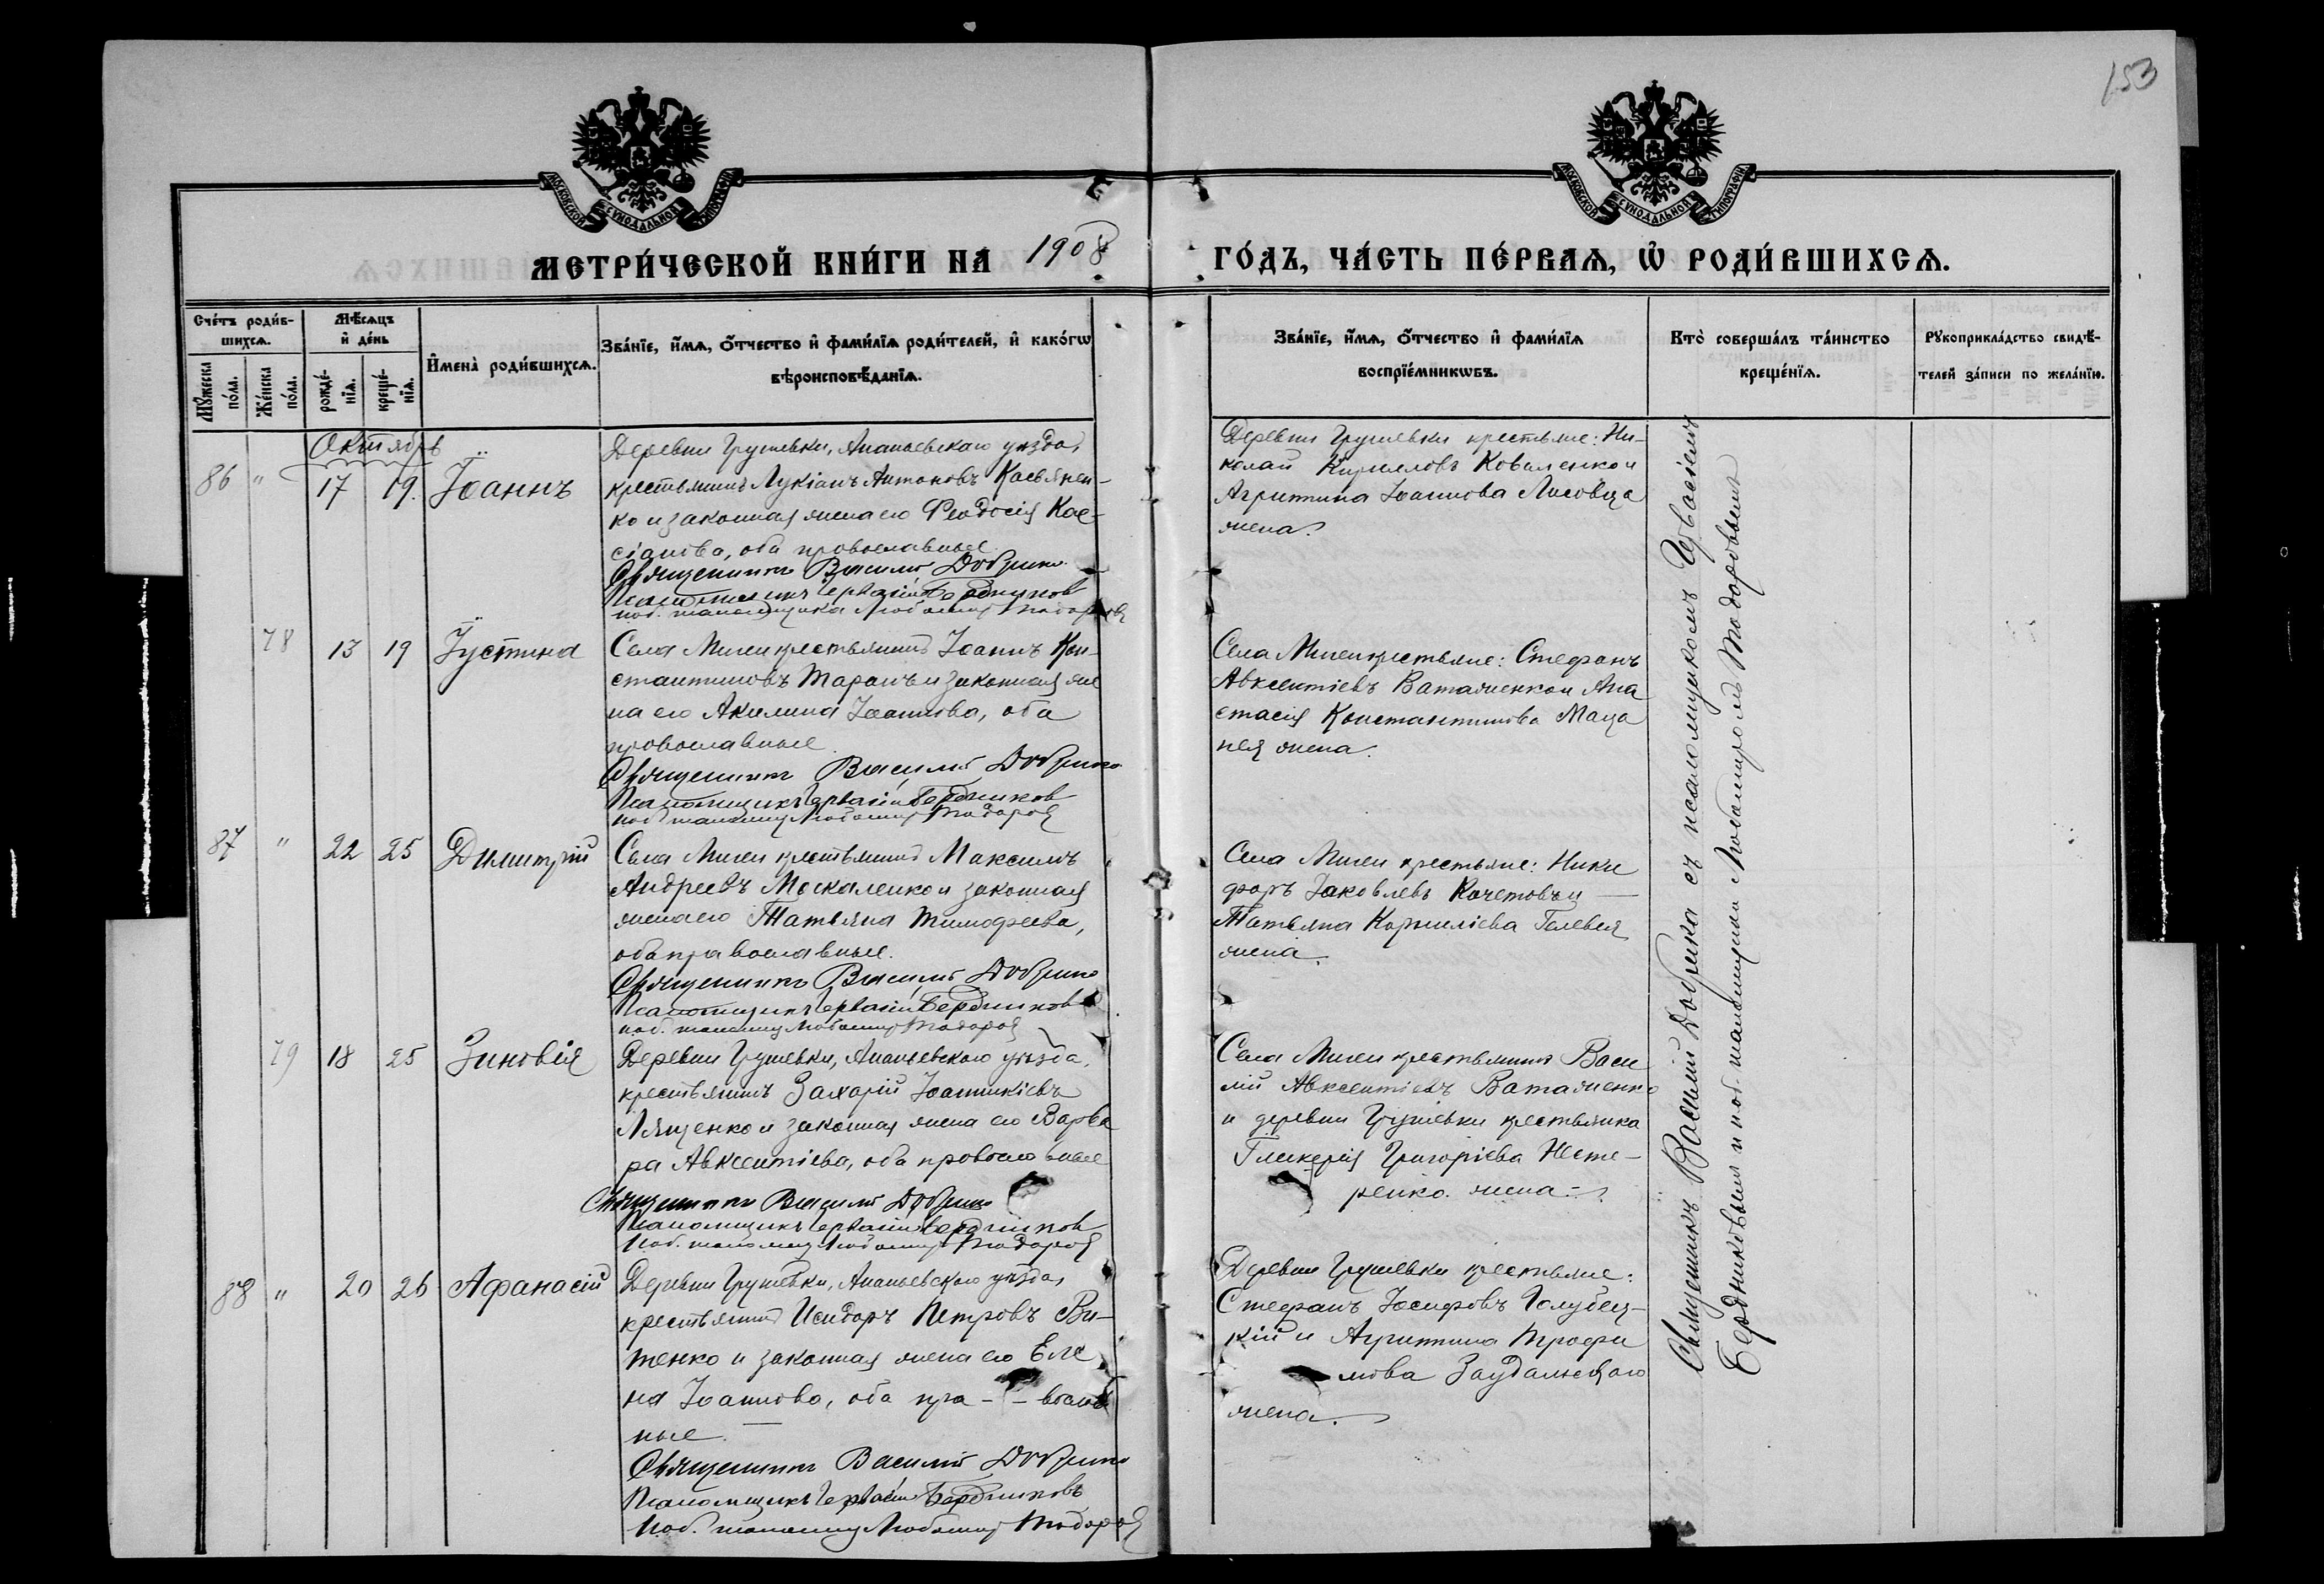 153
МОСКОВСКОЙ СУНОДАЛЬНОЙ ТИПОГРАФІИ
МОСКОВСКОЙ СУНОДАЛЬНОЙ ТИПОГРАФІИ
МЕТРИ́ЧЕСКОЙ КНИ́ГИ НА 1908 ГО́ДЪ, ЧА́СТЬ ПЕ́РВАЯ, Ѡ РОДИ́ВШИХСЯ.
Сче́тъ роди́в-
шихся.
Мѣ́сяцъ
и де́нь
Му́жеска по́ла.
Же́нска по́ла.
рожде́-
нїя.
креще́-
нїя.
Имена̀ роди́вшихся.
Зва́нїе, и́мя, о́тчество и фами́лїя роди́телей, и како́гѡ
вѣроисповѣ́данїя.
Зва́нїе, и́мя, о́тчество и фами́лїя
воспрїе́мникѡвъ.
Кто̀ соверша́лъ та́инство
креще́нїя.
Рукоприкла́дство свидѣ́-
телей за́писи по жела́нїю.
Октябрь
86 " 17 19. Іоаннъ
Деревни Грушевки, Ананьевскаго уѣзда,
крестьянинъ Лукіанъ Антоновъ Касьянен-
ко и законная жена его Феодосія Кас-
сіанова, оба православные
Священникъ Василій Добрико
Псаломщикъ Гервасій Бердниковъ
и об. псаломщика Любомиръ Тодоровъ
Деревни Грушевки крестьяне: Ни-
колай Кирилловъ Коваленко и
Агрипина Іоаннова Лисовца
жена.
78 13 19 Іустина
Села Мигеи крестьянинъ Іоаннъ Кон-
стантиновъ Таранъ и законная же
на его Акилина Іоаннова, оба
православные.
Священникъ Василій Добрико
Псаломщикъ Гервасій Бердниковъ
и об. псаломщ. Любомиръ Тодоровъ
Села Мигеи крестьяне: Стефанъ
Авксентіевъ Ватаженко и Ана
стасія Константинова Маца
нея жена.
87 " 22 25 Димитрій
Села Мигеи крестьянинъ Максимъ
Андреевъ Москаленко и законная
жена его Татьяна Тимофеева,
оба православные.
Священникъ Василій Добрико
Псаломщикъ Гервасій Бердниковъ
и об. псаломщ. Любомиръ Тодоровъ
Села Мигеи крестьяне: Ники
форъ Іаковлевъ Кочетовъ и
Татьяна Корниліева Гелевея
жена.
79 18 25 Зиновія
Деревни Грушевки, Ананьевскаго уѣзда,
крестьянинъ Захарій Іоанникіевъ
Лященко и законная жена его Варва
ра Авксентіева, оба православные
Священникъ Василій Добрико
Псаломщикъ Гервасій Бердниковъ
и об. псаломщ. Любомиръ Тодоровъ
Села Мигеи крестьянинъ Васи
лій Авксентіевъ Ватаженко
и деревни Грушевки крестьянка
Гликерія Григоріева Несте-
ренко. жена
88 " 20 26 Афанасій
Деревни Грушевки, Ананьевскаго уѣзда,
крестьянинъ Исидоръ Петровъ Ви-
тенко и законная жена его Еле
на Іоаннова, оба пра- -вослав
ные.
Священникъ Василій Добрико
Псаломщикъ Гервасій Бердниковъ
и об. псаломщ. Любомиръ Тодоровъ
Деревни Грушевки крестьяне:
Стефанъ Іосифовъ Голубец-
кій и Агрипина Трофи
мова Заудальскаго
жена.
Священникъ Василій Добрико съ псаломщикомъ Гервасіемъ
Бердниковымъ и и об. псаломщика Любомиромъ Тодоровымъ